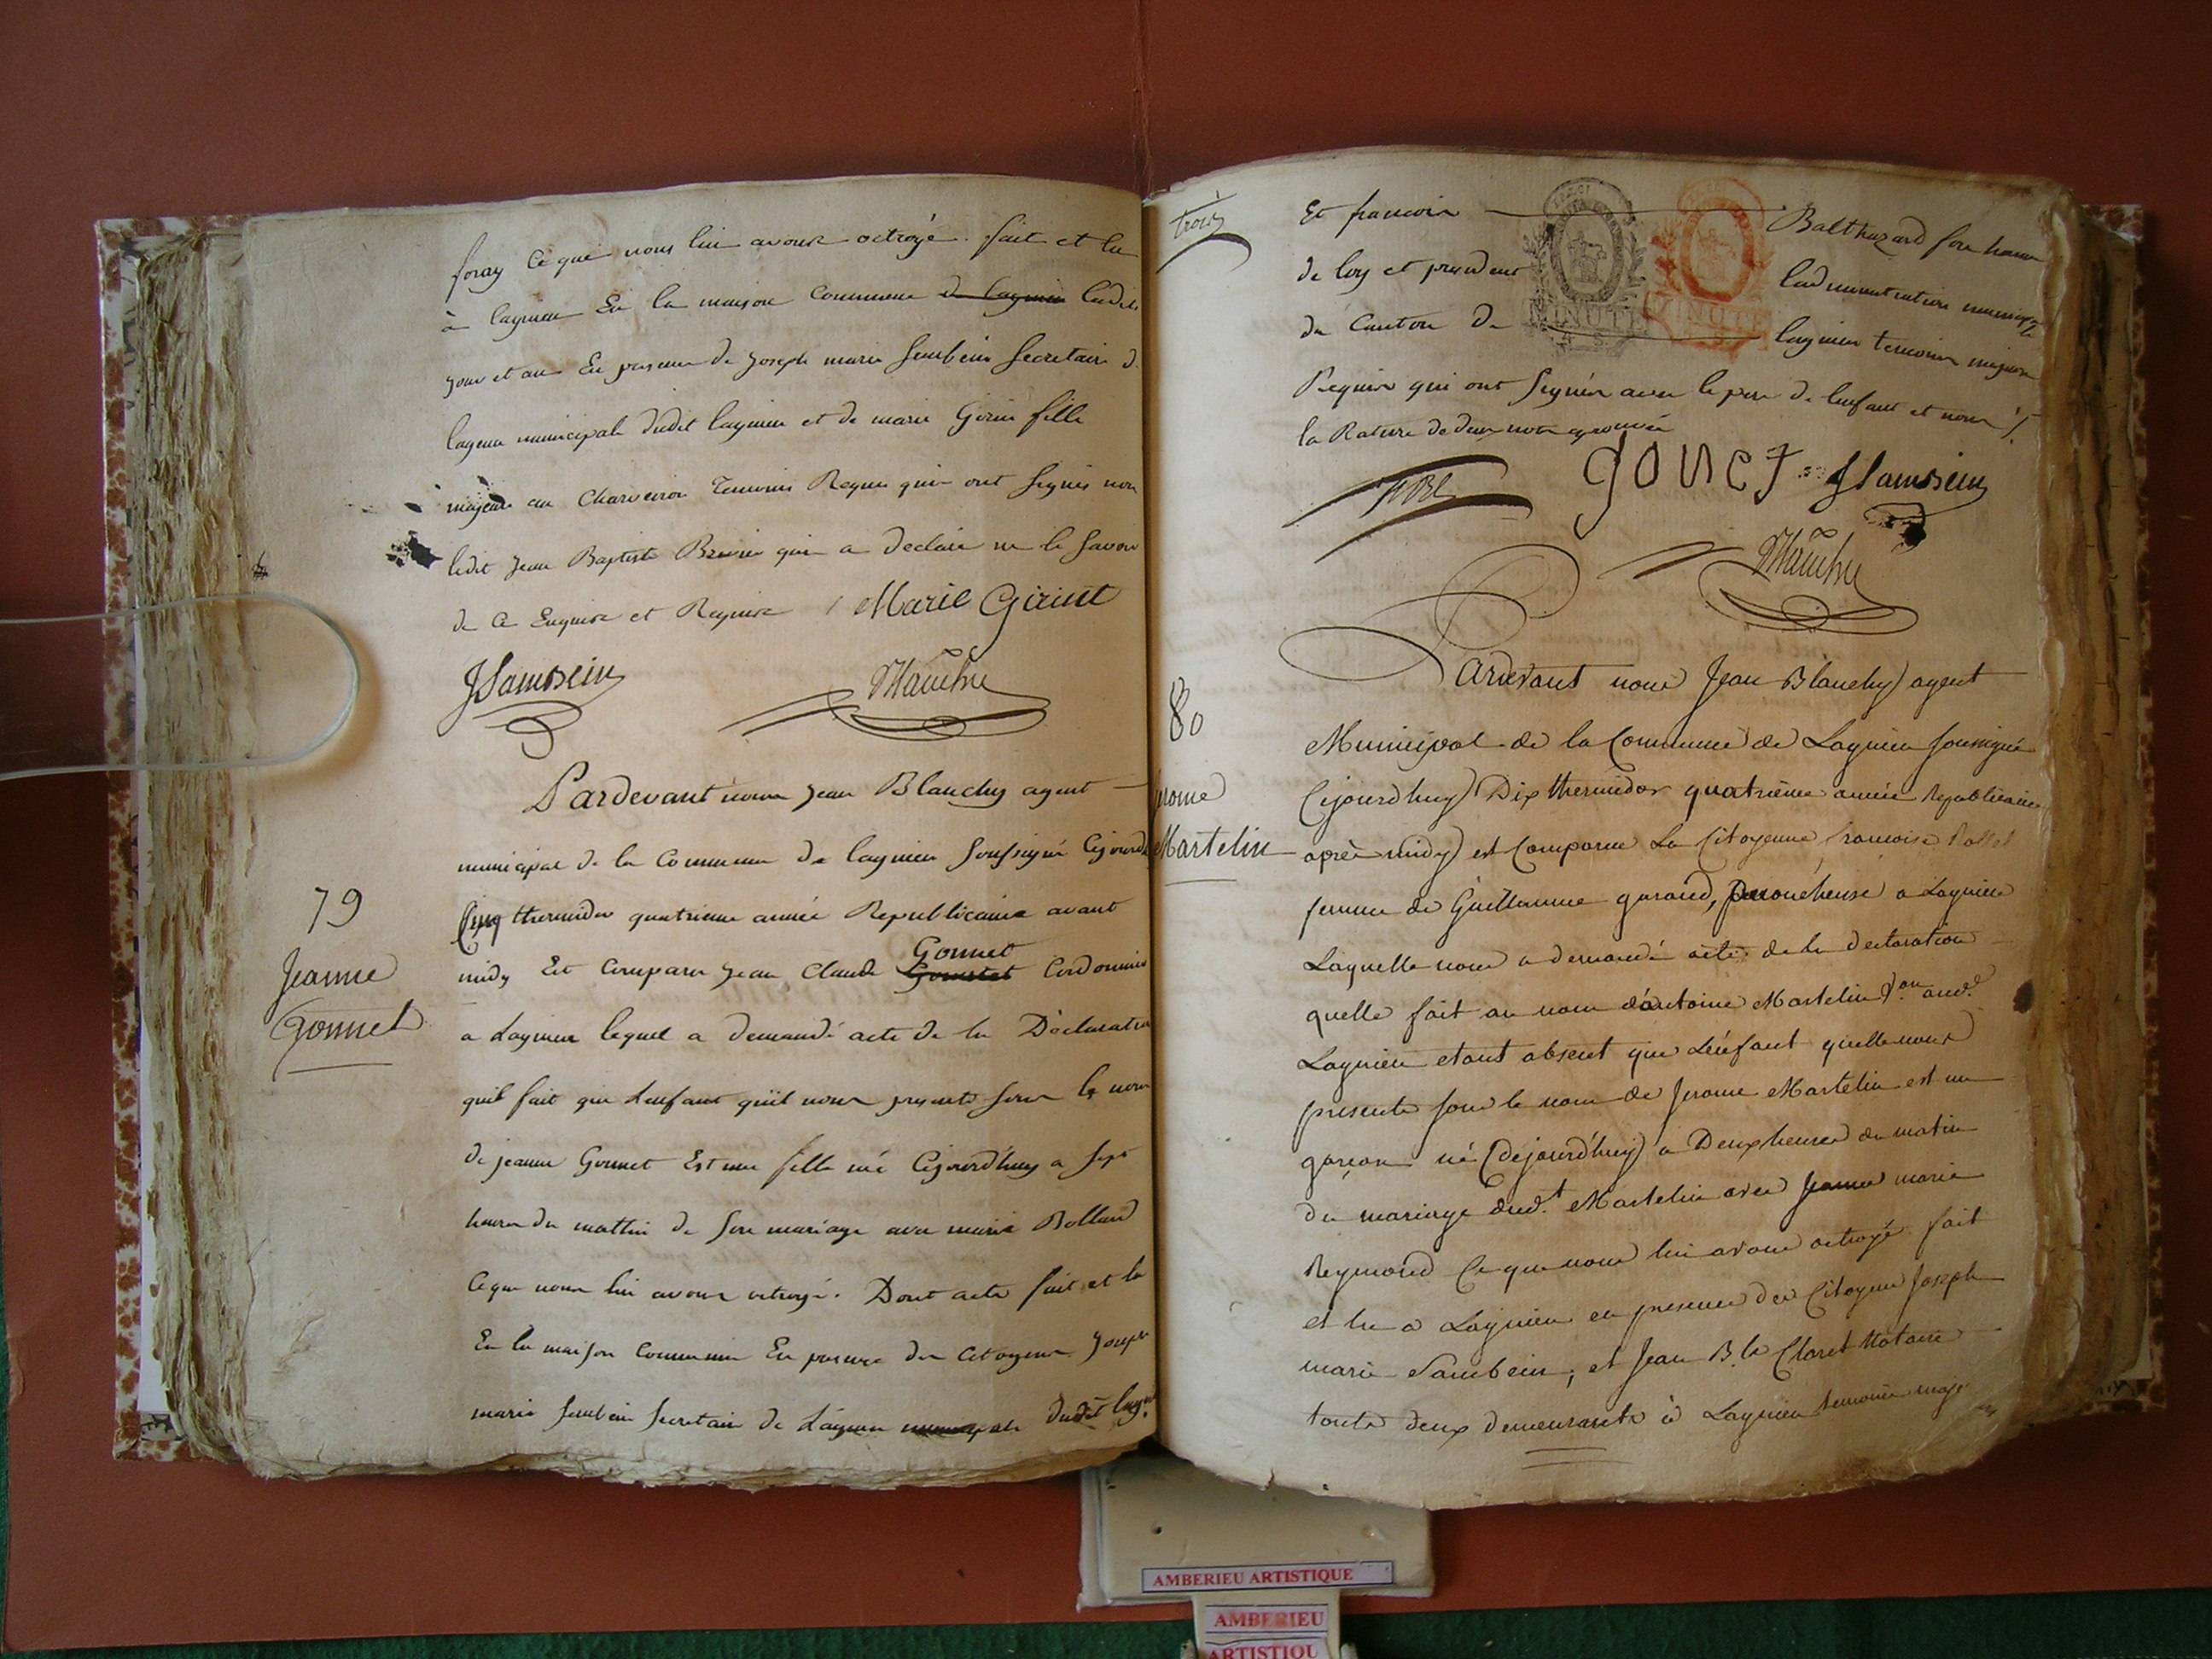 foray Ce que nous lui avons octroyé. fait et lu
à lagnieu En la maison Commune de lagnieu ledit
jour et an En presence de joseph marie Sambein Secretaire d
lagence municipale dudit lagnieu et de marie Girin fille
majeure au Charveiron Temoins Requis qui ont Signés non
ledit jean Baptiste qui a declaré ne le savoir
de ce Enquis et Requis / Marie Girint
JSambein Blanchy
Pardevant nous jean Blanchy agent
municipal de la Commune de lagnieu soussigné Cejourd
79
Cinq thermidor quatrieme année Republicaine avant
Gonnet
midy Est Comparu jean Claude Cordonnier
Jeanne
Gonnet
a Lagnieu lequel a demandé acte de la Déclaration
quil fait que Lenfant quil nous presente sous le nom
de jeanne Gonnet Est une fille née Cejourdhuy a sept
heures du mattin de son mariage avec marie Bolland
Ceque nous lui avons octroyé. Dont acte fait et lu
En la maison Commune En presence du Citoyen joseph
marie Sambein Secretaire de Lagence municipale dudit lagn.
trois
Et francois Balthazard homme
de loy et president ladministration municip
du Canton de lagnieu temoins majeurs
MINUTE MINUTE
Requis qui ont Signés avec le pere de lenfant et nous
la Rature de deux mots aprouvée
GONET JSambein
Blanchy
Pardevant nous Jean Blanchy agent
80
Municipal de la Commune de Lagnieu soussigné
Cejourdhuy Dix thermidor quatrième année Republicaine
Jerome
Martelin
après midy est Comparue La Citoyenne francoise
femme de Guillaume garand, a Lagnieu
Laquelle nous a demandé acte de la declaration
quelle fait au nom d'antoine Martelin
Lagnieu etant absent que L'énfant quelle nous
presente sous le nom de Jerome Martelin est un
garçon né Cejourd'huy a Deux heures du matin
du mariage dud.t Martelin avec Jeanne marie
Reymond Ce que nous lui avons octroyé fait
et lu a Lagnieu en presence des Citoyens Joseph
marie Sambein, et Jean B.te Claret Notaire
touts deux demeurants à Lagnieu temoins maj
AMBERIEU ARTISTIQUE
AMBERIEU
ARTISTIQU